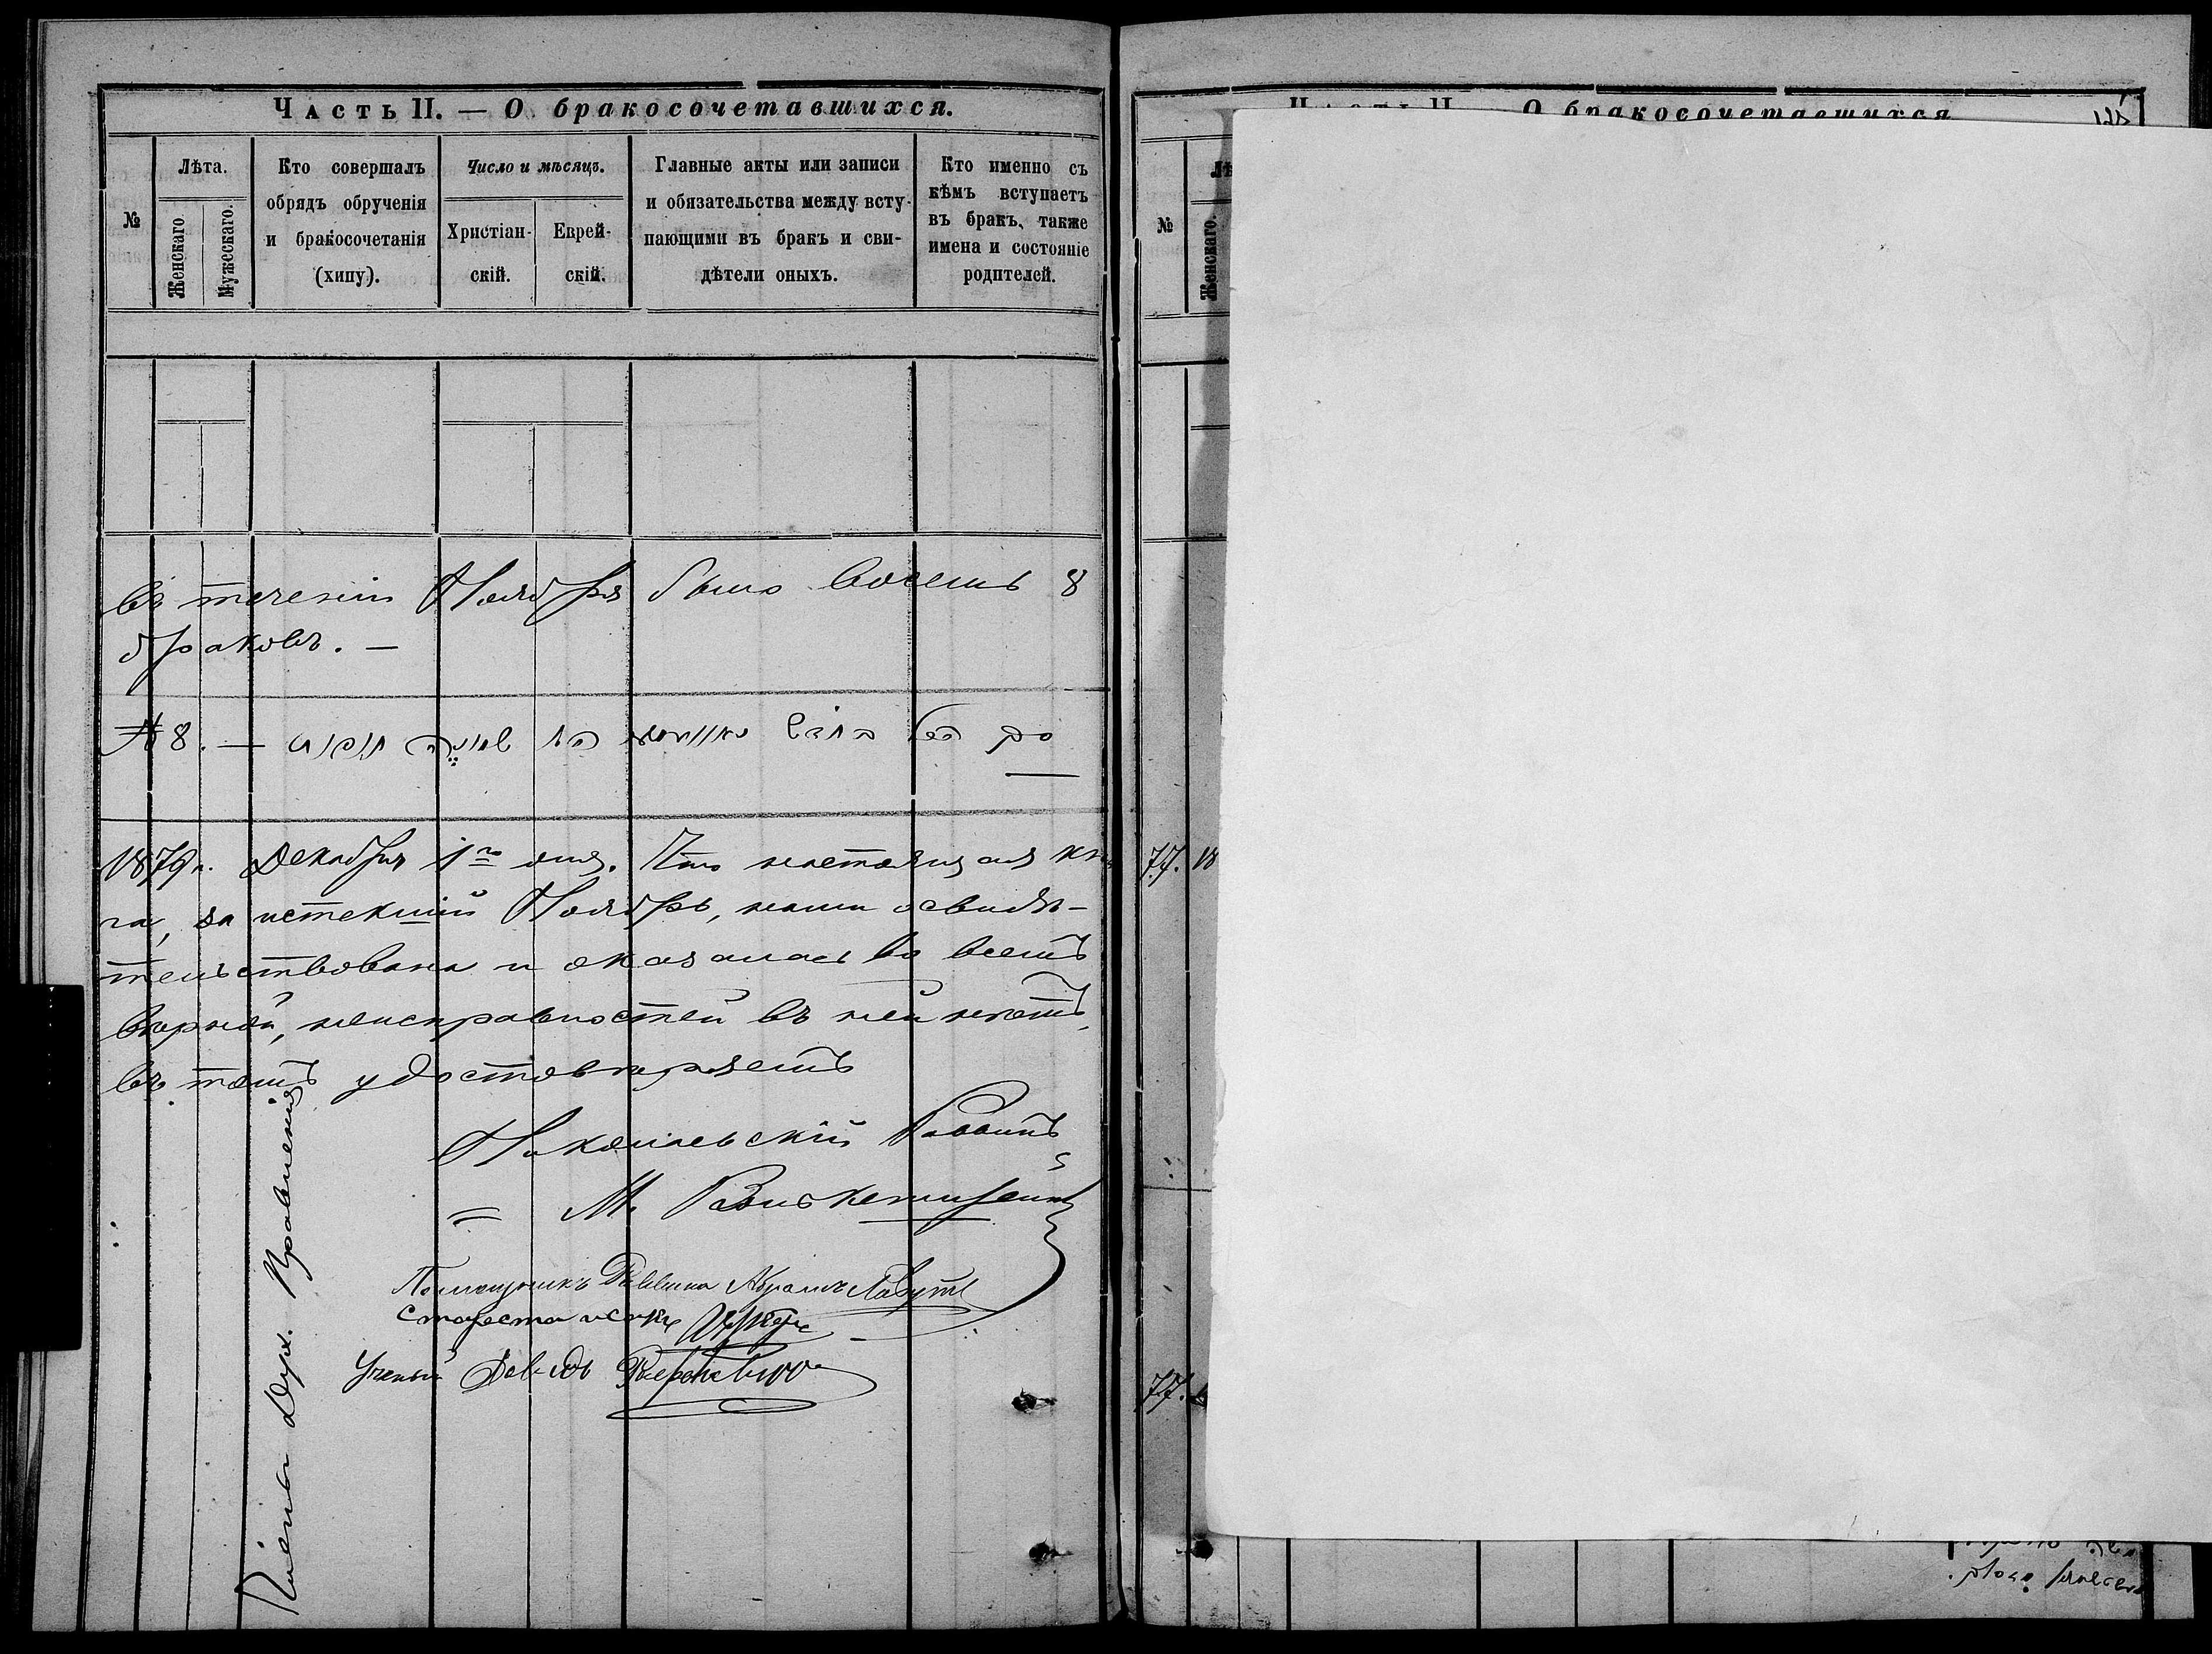 Часть II. — О бракосочетавшихся.
№
Лѣта.
Женскаго
Мужескаго.
Кто совершалъ
обрядъ обрученія
и бракосочетанія
(хипу).
Число и мѣсяцъ.
Христіан-
скій.
Еврей-
скій.
Главные акты или записи
и обязательства между всту-
пающими въ бракъ и сви-
дѣтели оныхъ.
Кто именно съ
кѣмъ вступаетъ
въ бракъ, также
имена и состояніе
родителей.
Въ теченіи Ноября было восемь 8
браковъ. —
№ 8. —
1879 г. Декабря 1го дня. Что настоящая кни
га, за истекшій Ноябрь, нами освидѣ-
тельствована и оказалась во всемъ
вѣрной, неисправностей въ ней нѣтъ,
въ томъ удостовѣряемъ
Николаевскій Раввинъ
М.
Помощникъ Раввина Абрамъ Лавутъ
Староста
Ученый Давидъ
Члены Дух. Правленія
Часть II. — О бракосочетавшихся
121
№
Лѣ
Женскаго.
77. 18
77.